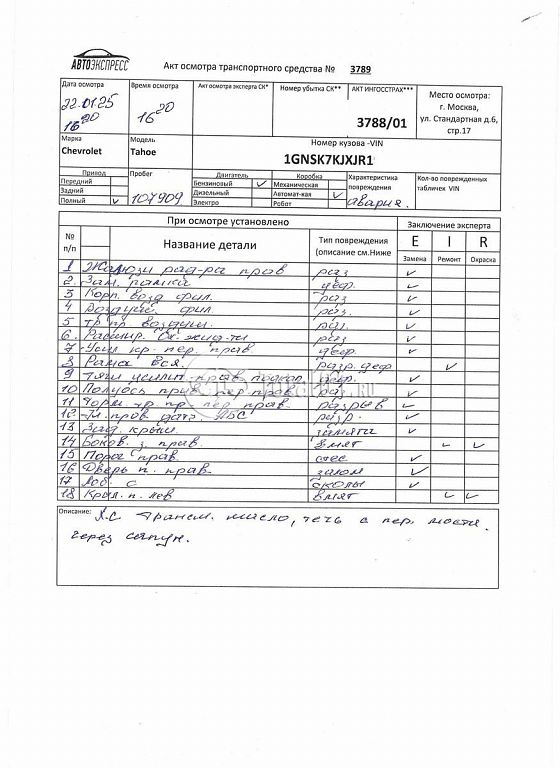 АВТОЭКСПРЕСС
Акт осмотра транспортного средства № 3789
Дата осмотра Время осмотра Акт осмотра эксперта СК* Номер убытка СК** АКТ ИНГОССТРАХ*** Место осмотра:
22.01.25 16 20 г. Москва,
16 20 3788/01 ул. Стандартная д.6,
стр.17
Марка Модель Номер кузова -VIN
Chevrolet Tahoe 1GNSK7KJXJR1
Привод Пробег Двигатель Коробка Характеристика повреждения Кол-во поврежденных табличек VIN
Передний Бензиновый ✓ Механическая
Задний 107909 Дизельный Автомат-кая ✓ авария.
Полный ✓ Электро Робот
При осмотре установлено Заключение эксперта
№ п/п Название детали Тип повреждения (описание см.Ниже E I R
Замена Ремонт Окраска
1 Жалюзи рад-ра прав раз ✓
2. Зам. рамка деф. ✓
3 Корп. возд фил. раз ✓
4 Воздуш. фил. раз ✓
5 тр пр воздуш. раз. ✓
6. Расшир. бч. жид-ти раз ✓
7 Усил кр. пер. прав деф. ✓
8 Рама вся. разр. деф ✓
9 прав деф. ✓
10 Полуось прив. пер прав раз. ✓
11 Торм тр пр пер прав. разрыв ✓
12 пров датч. АБС разр. ✓
13 Зад. крыш. замята ✓
14 Боков. з. прав. вмят ✓ ✓
15 Порог прав. ✓
16 Дверь п. прав залом ✓
17 Лоб. с сколы ✓
18 Крыл. п. лев вмят ✓ ✓
Описание: Л.С трансм. масло, течь с пер. моста.
через сапун.